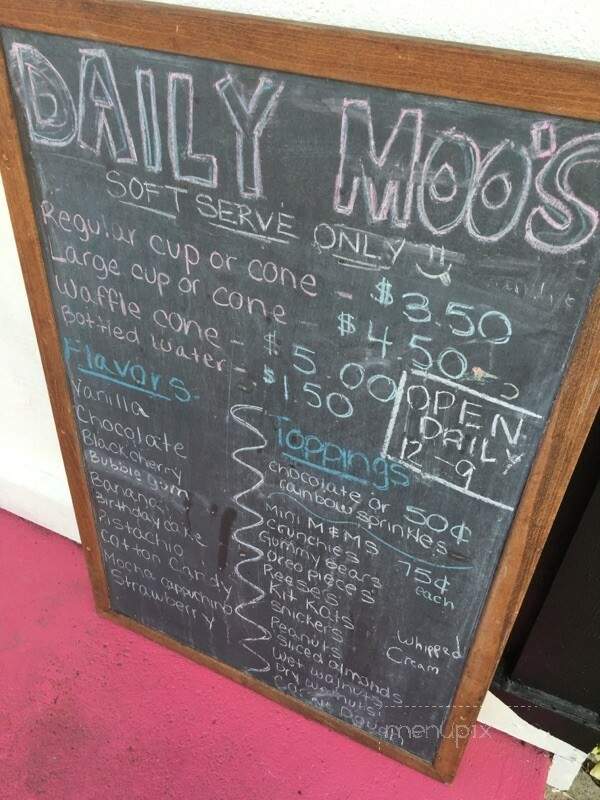 DAILY MOO'S
SOFT SERVE ONLY
Regular cup or cone - $3.50
Large cup or cone - $4.50
Waffle cone - $5.00
Bottled water - $1.50
OPEN
DAILY
12-9
Flavors
Vanilla
Chocolate
Black cherry
Bubble gum
Banana
Birthday cake
Pistachio
Cotton Candy
Mocha cappuchino
Strawberry
Toppings
chocolate or
rainbow sprinkles 50¢
Mini M&MS
Crunchies
Gummy bears
Oreo pieces
Reese's
Kit Kats
Snickers
Peanuts
Sliced almonds
Wet walnuts
Dry walnuts
75¢
each
Whipped
Cream
menupix